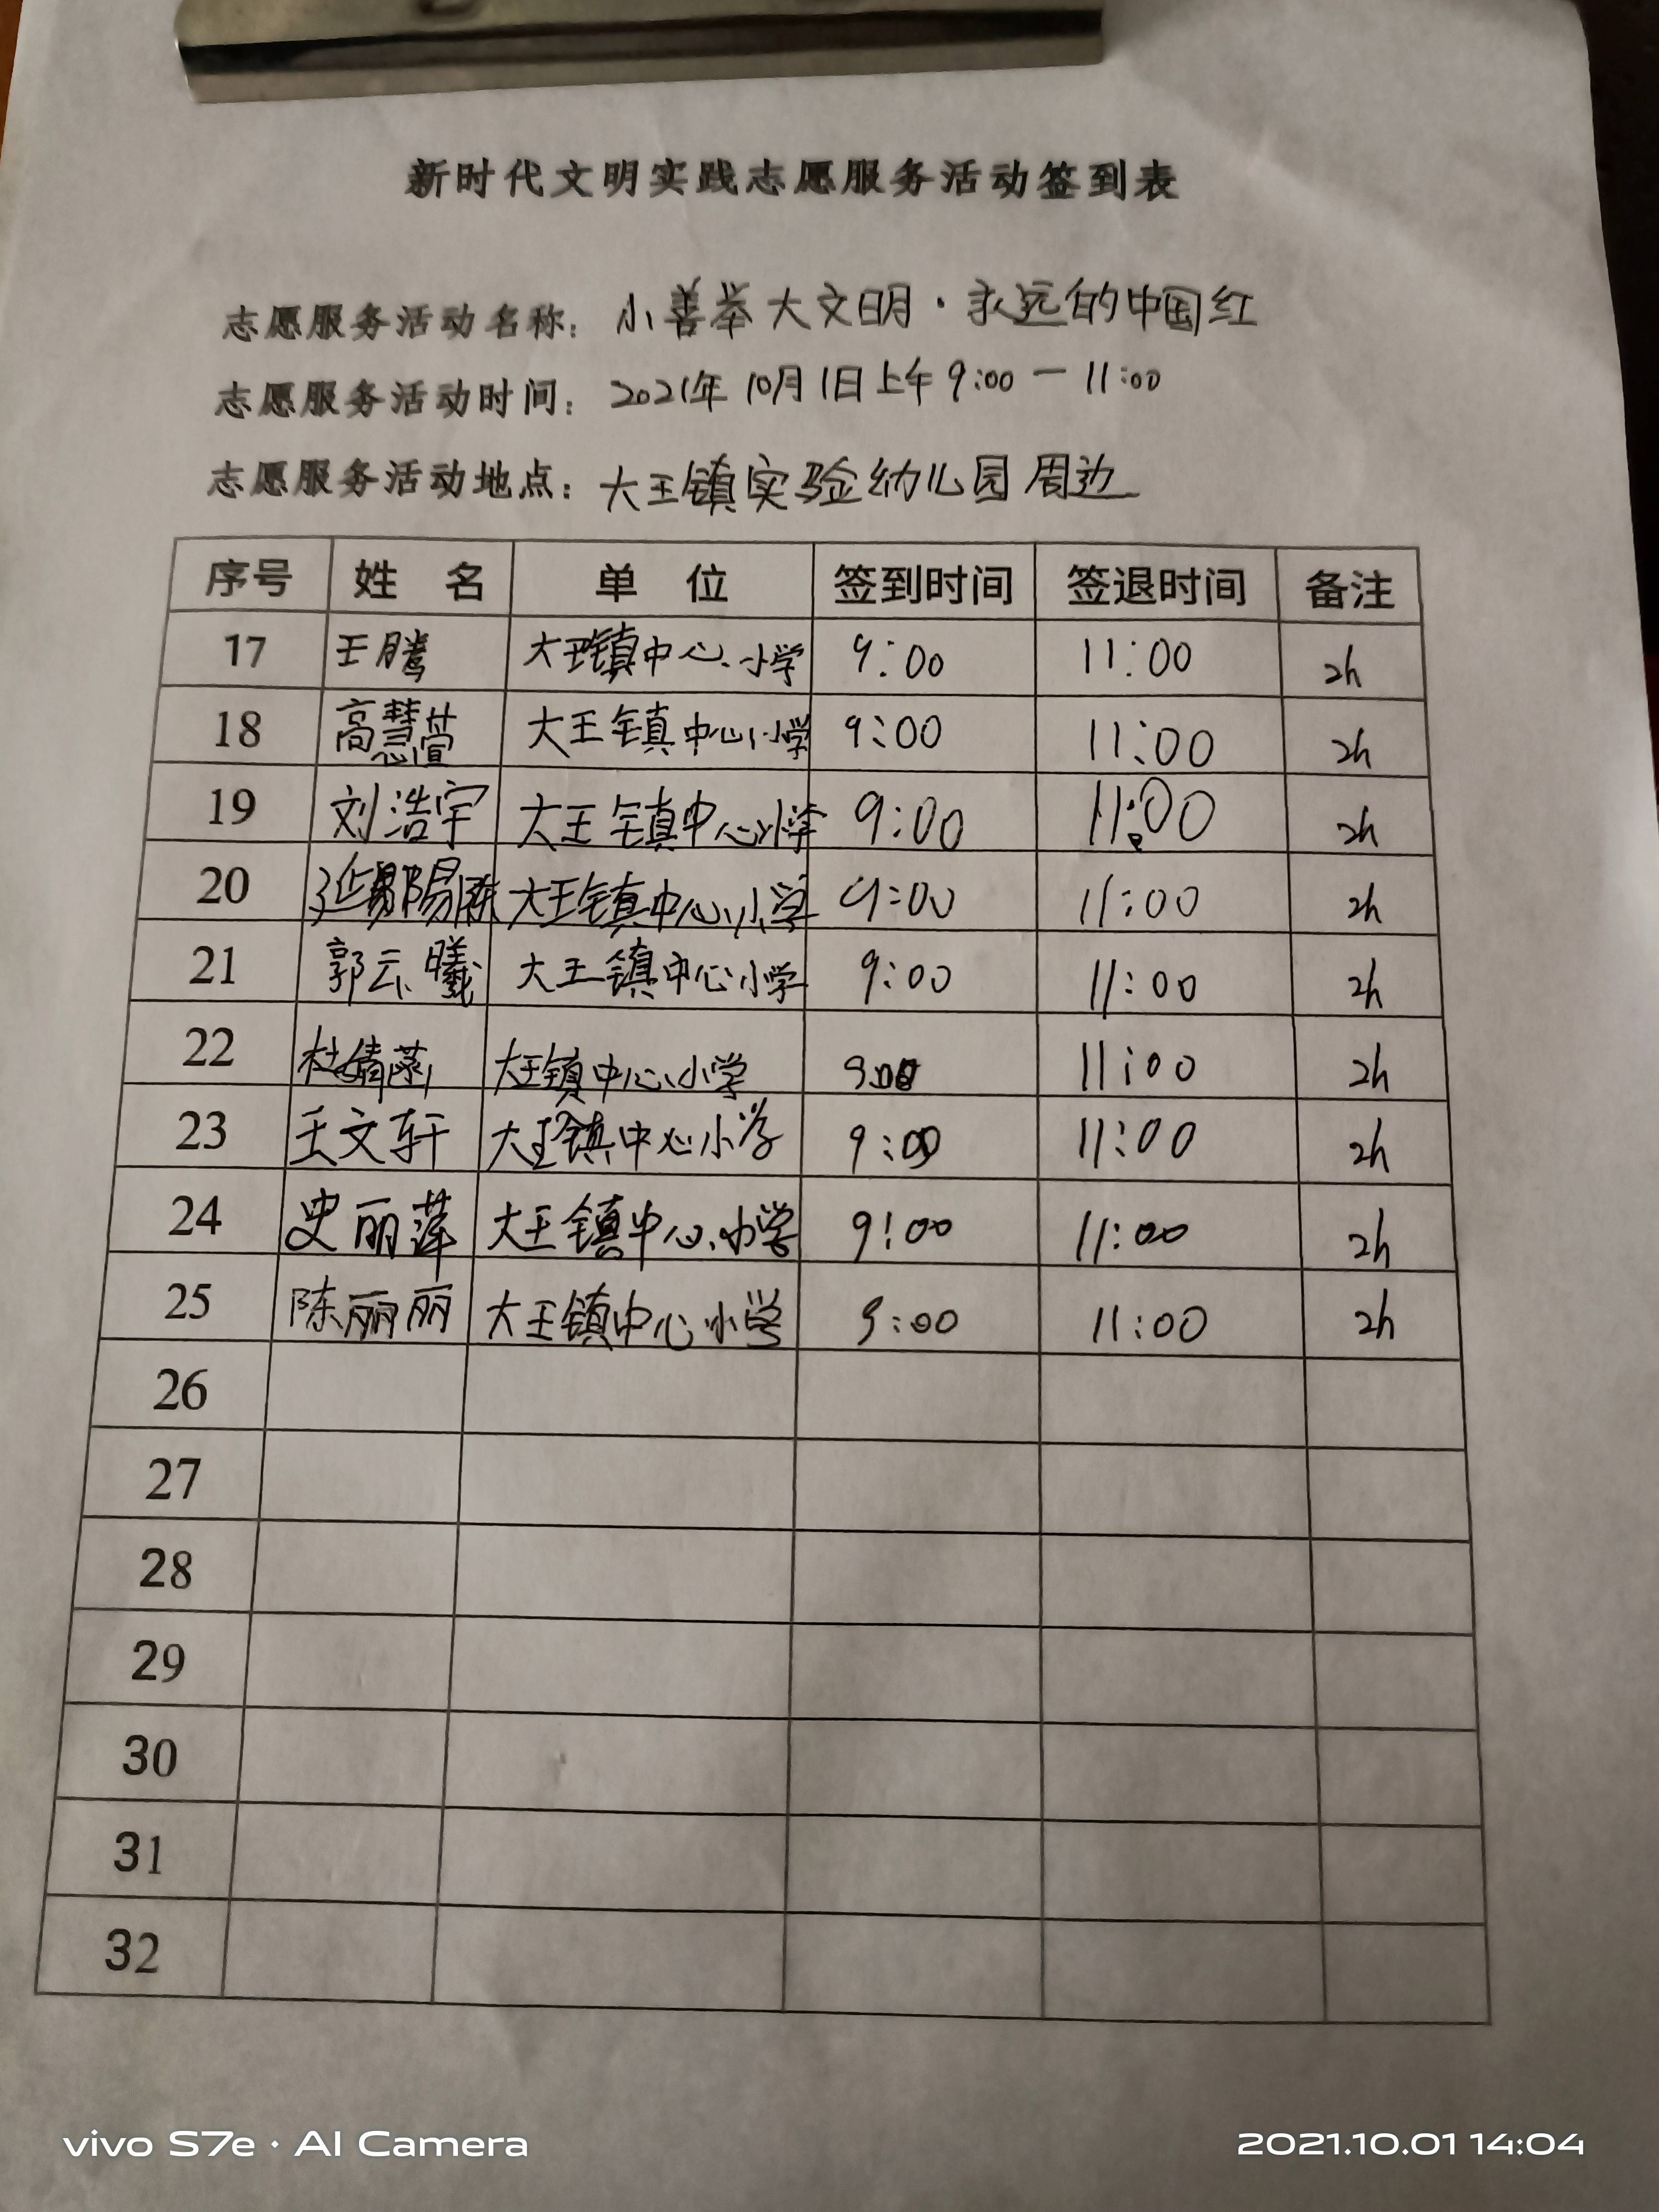 新时代文明实践志愿服务活动签到表
志愿服务活动名称：小善举大文明·永远的中国红
志愿服务活动时间：2021年10月1日上午9:00—11:00
志愿服务活动地点：大王镇实验幼儿园周边
序号 姓 名 单 位 签到时间 签退时间 备注
17 王腾 大王镇中心小学 9:00 11:00 2h
18 高慧萱 大王镇中心小学 9:00 11:00 2h
19 刘浩宇 大王镇中心小学 9:00 11:00 2h
20 大王镇中心小学 9:00 11:00 2h
21 郭云曦 大王镇中心小学 9:00 11:00 2h
22 杜婧菡 大王镇中心小学 9:00 11:00 2h
23 王文轩 大王镇中心小学 9:00 11:00 2h
24 史丽萍 大王镇中心小学 9:00 11:00 2h
25 陈丽丽 大王镇中心小学 9:00 11:00 2h
26
27
28
29
30
31
32
vivo S7e · AI Camera 2021.10.01 14:04